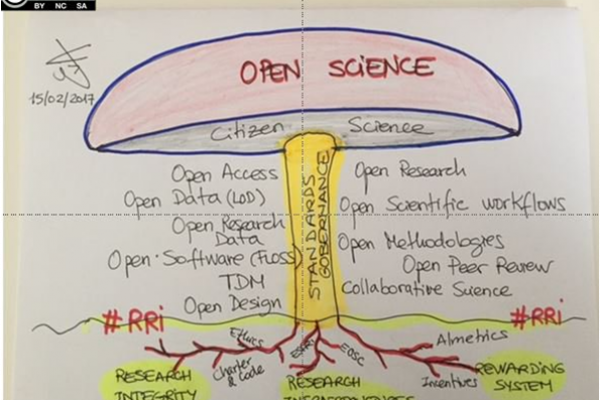 BY NC SA
15/02/2017
OPEN SCIENCE
Citizen Science
Open Access
Open Data (LOD)
Open Research
Data
Open·Software (FLOSS)
TDM
Open Design
STANDARDS
GOBERNANCE
Open Research
Open Scientific workflows
Open Methodologies
Open Peer Review
Collaborative Suence
#RRi
#RRi
Ethics
Charter
& Code
ESFRI
EOSC
Almetrics
Incentives
RESEARCH
INTEGRITY
RESEARCH
REWARDING
SYSTEM